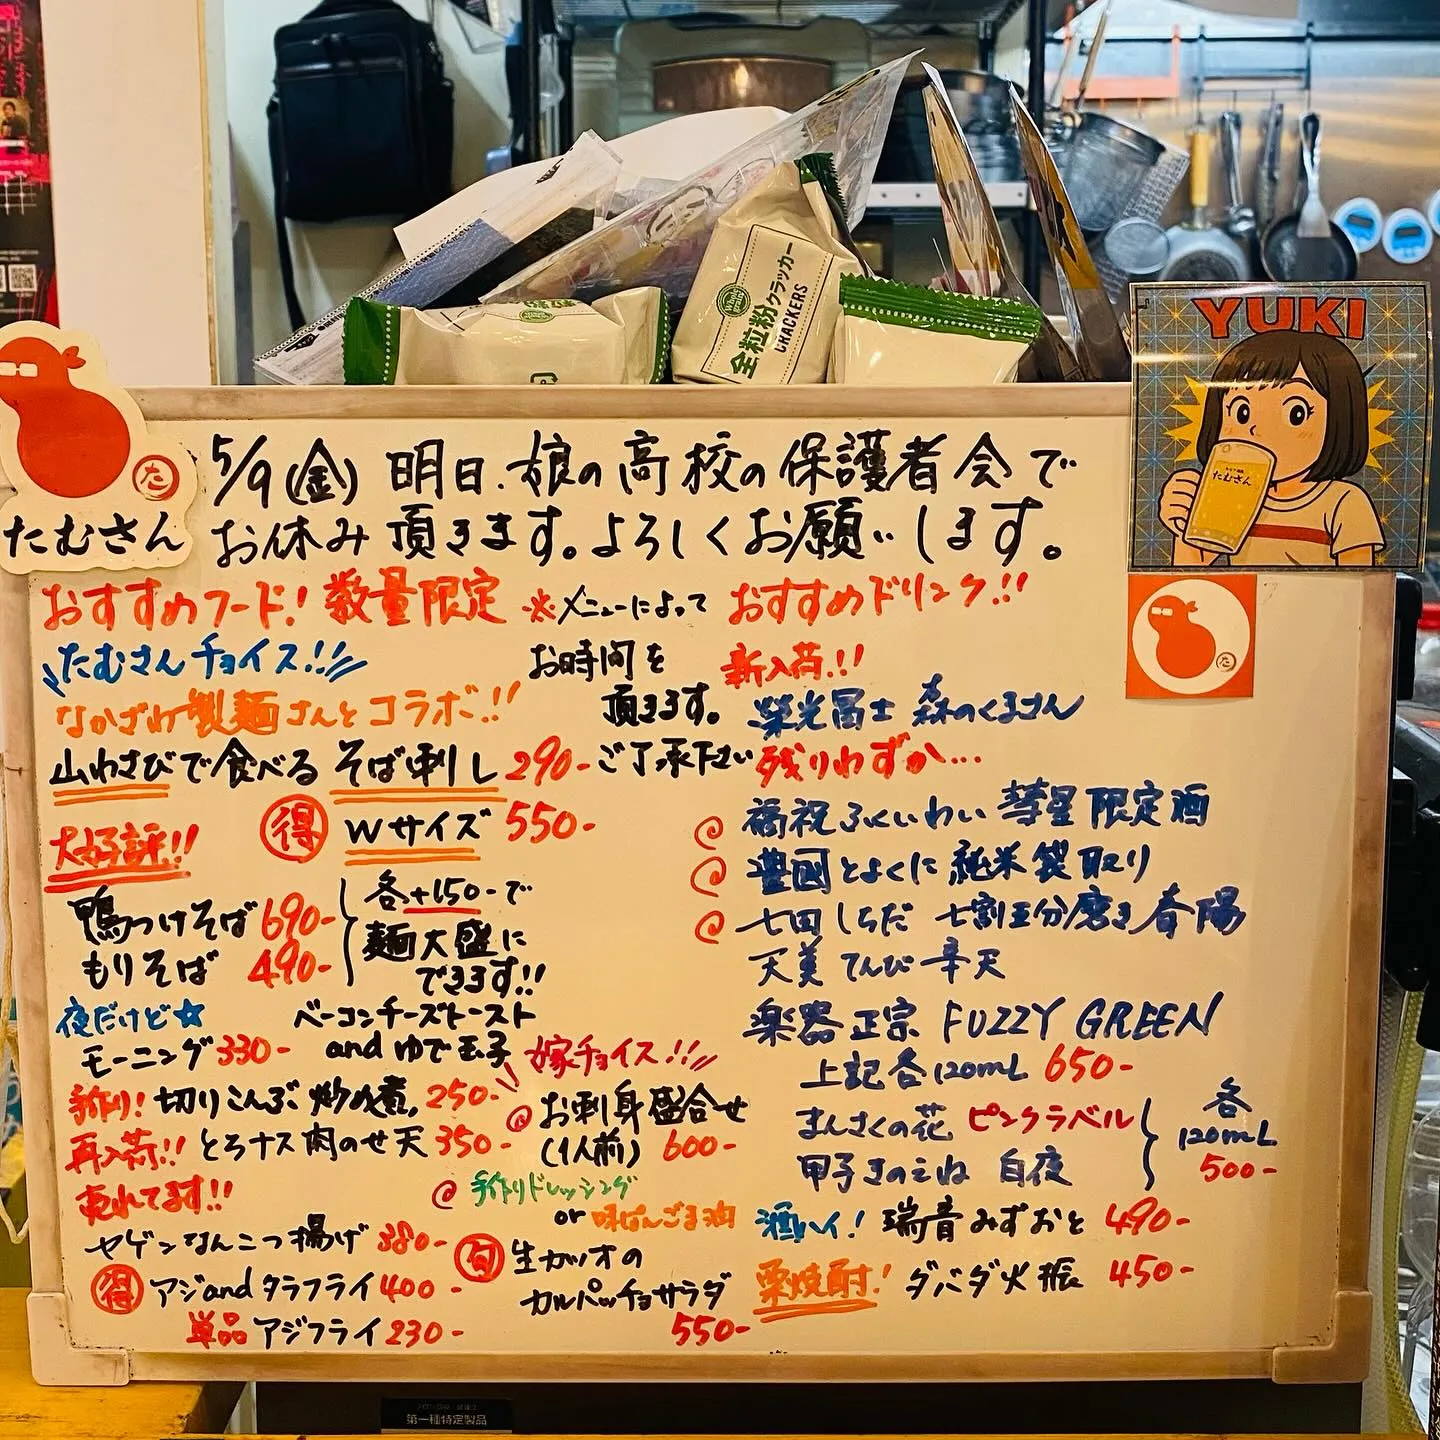 全粒粉クラッカー
CRACKERS
YUKI
たむさん
た
たむさん
5/9(金) 明日、娘の高校の保護者会で
お休み頂きます。よろしくお願いします。
おすすめフード! 数量限定
※メニューによって
お時間を
頂きます。
ご了承下さい
たむさんチョイス!!
なかざわ製麺さんとコラボ!!
山わさびで食べる そば刺し 290-
得 Wサイズ 550-
大好評!!
鴨つけそば 690-
もりそば 490-
各+150-で
麺大盛に
できます!!
夜だけど☆
モーニング 330-
ベーコンチーズトースト
and ゆで玉子
手作り! 切りこんぶ炒め煮 250-
再入荷!! とろナス肉のせ天 350-
売れてます!!
ヤゲンなんこつ揚げ 380-
得 アジandタラフライ 400-
単品 アジフライ 230-
嫁チョイス!!
お刺身盛合せ
(1人前) 600-
手作りドレッシング
or 味ぽんごま油
旬 生カツオの
カルパッチョサラダ
550-
おすすめドリンク!!
新入荷!!
榮光冨士 森のくまさん
残りわずか…
福祝 ふくいわい 彗星 限定酒
豊國 とよくに 純米 袋取り
七田 しちだ 七割五分磨き 春陽
天美 てんび 辛天
楽器正宗 FUZZY GREEN
上記各120mL 650-
まんさくの花 ピンクラベル
甲子 きのえね 白夜
各
120mL
500-
酒ハイ! 瑞音 みずおと 490-
栗焼酎! ダバダ火振 450-
第一種特定製品